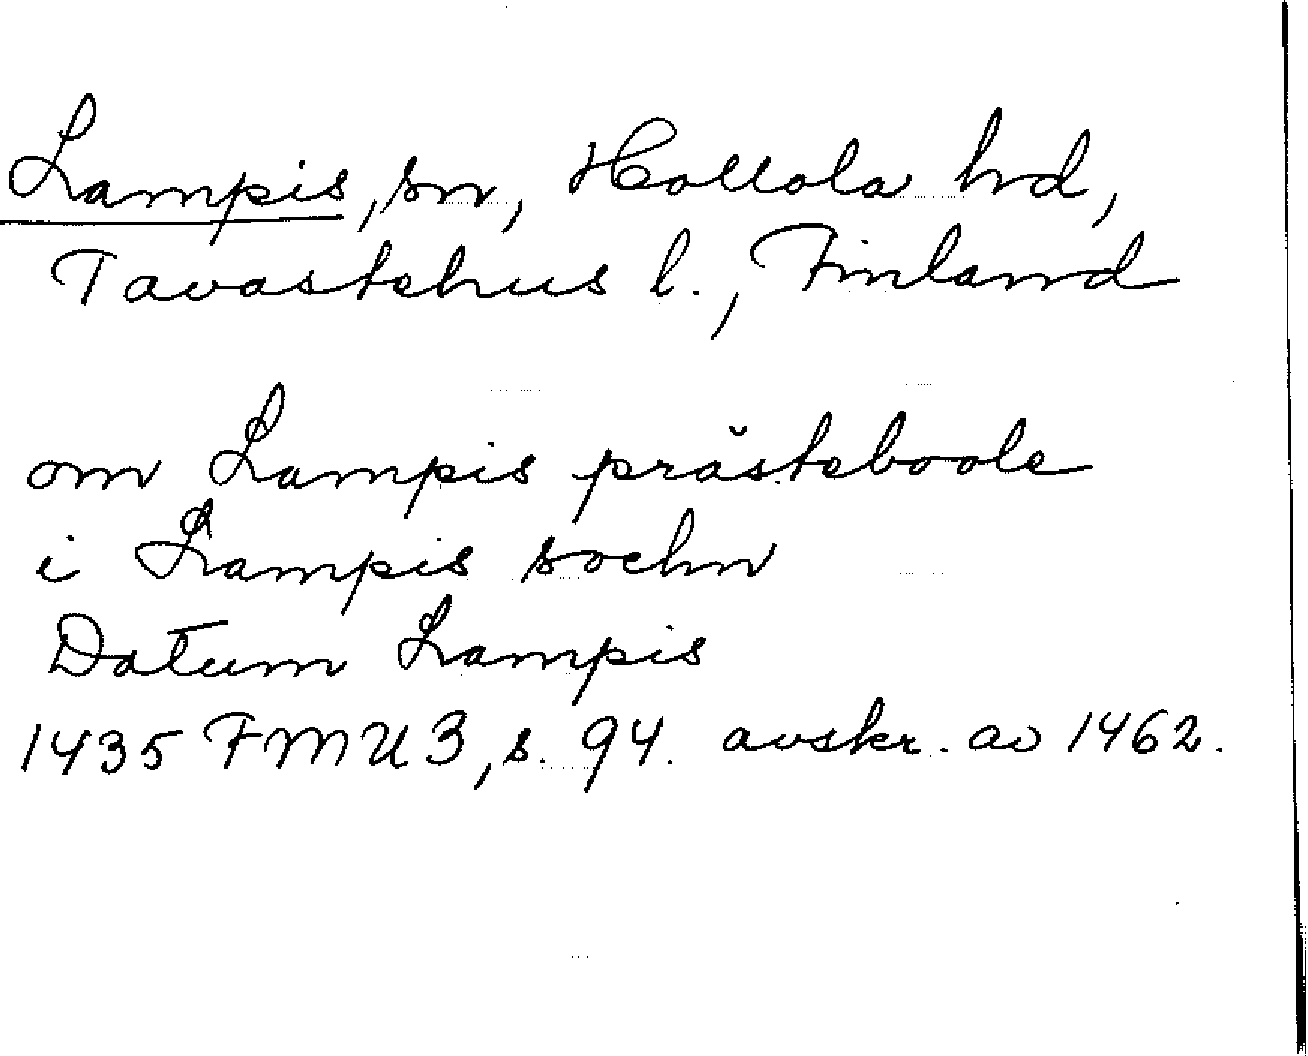 Lampis, sn, Hollola hd,
Tavastehus l., Finland
om Lampis prästeboole
i Lampis sochn
Datum Lampis
1435 FMU 3, s. 94. avskr. av 1462.